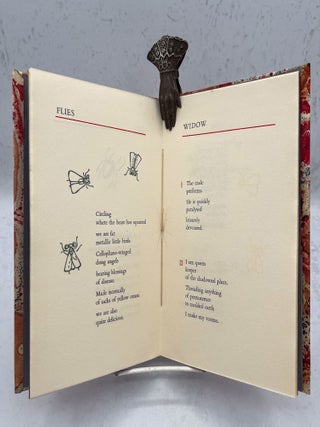 FLIES
Circling
where the beast has squatted
we are fat
metallic little birds
Cellophane-winged
dung angels
bearing blessings
of disease.
Made internally
of sacks of yellow cream
we are also
quite delicious.
WIDOW
I
The male
performs
He is quickly
paralyzed
leisurely
devoured.
II
I am queen
keeper
of the shadowed place.
Threading anything
of permanence
to molded earth
I make my rooms.